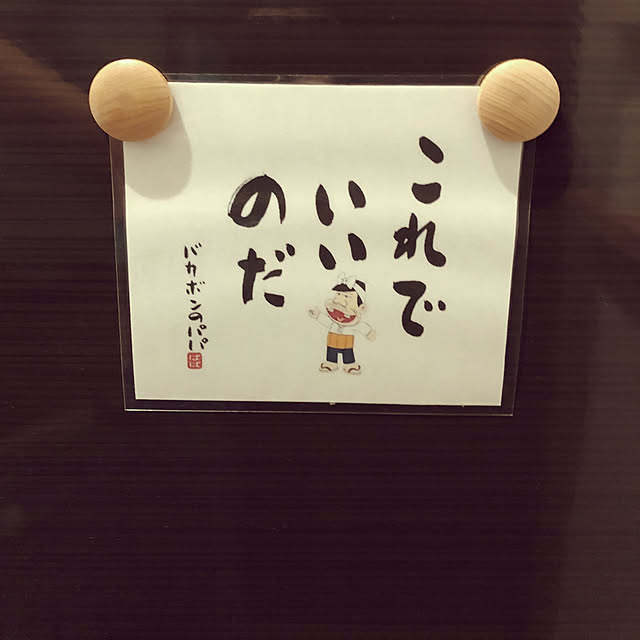 これで
いい
のだ
バカボンのパパ